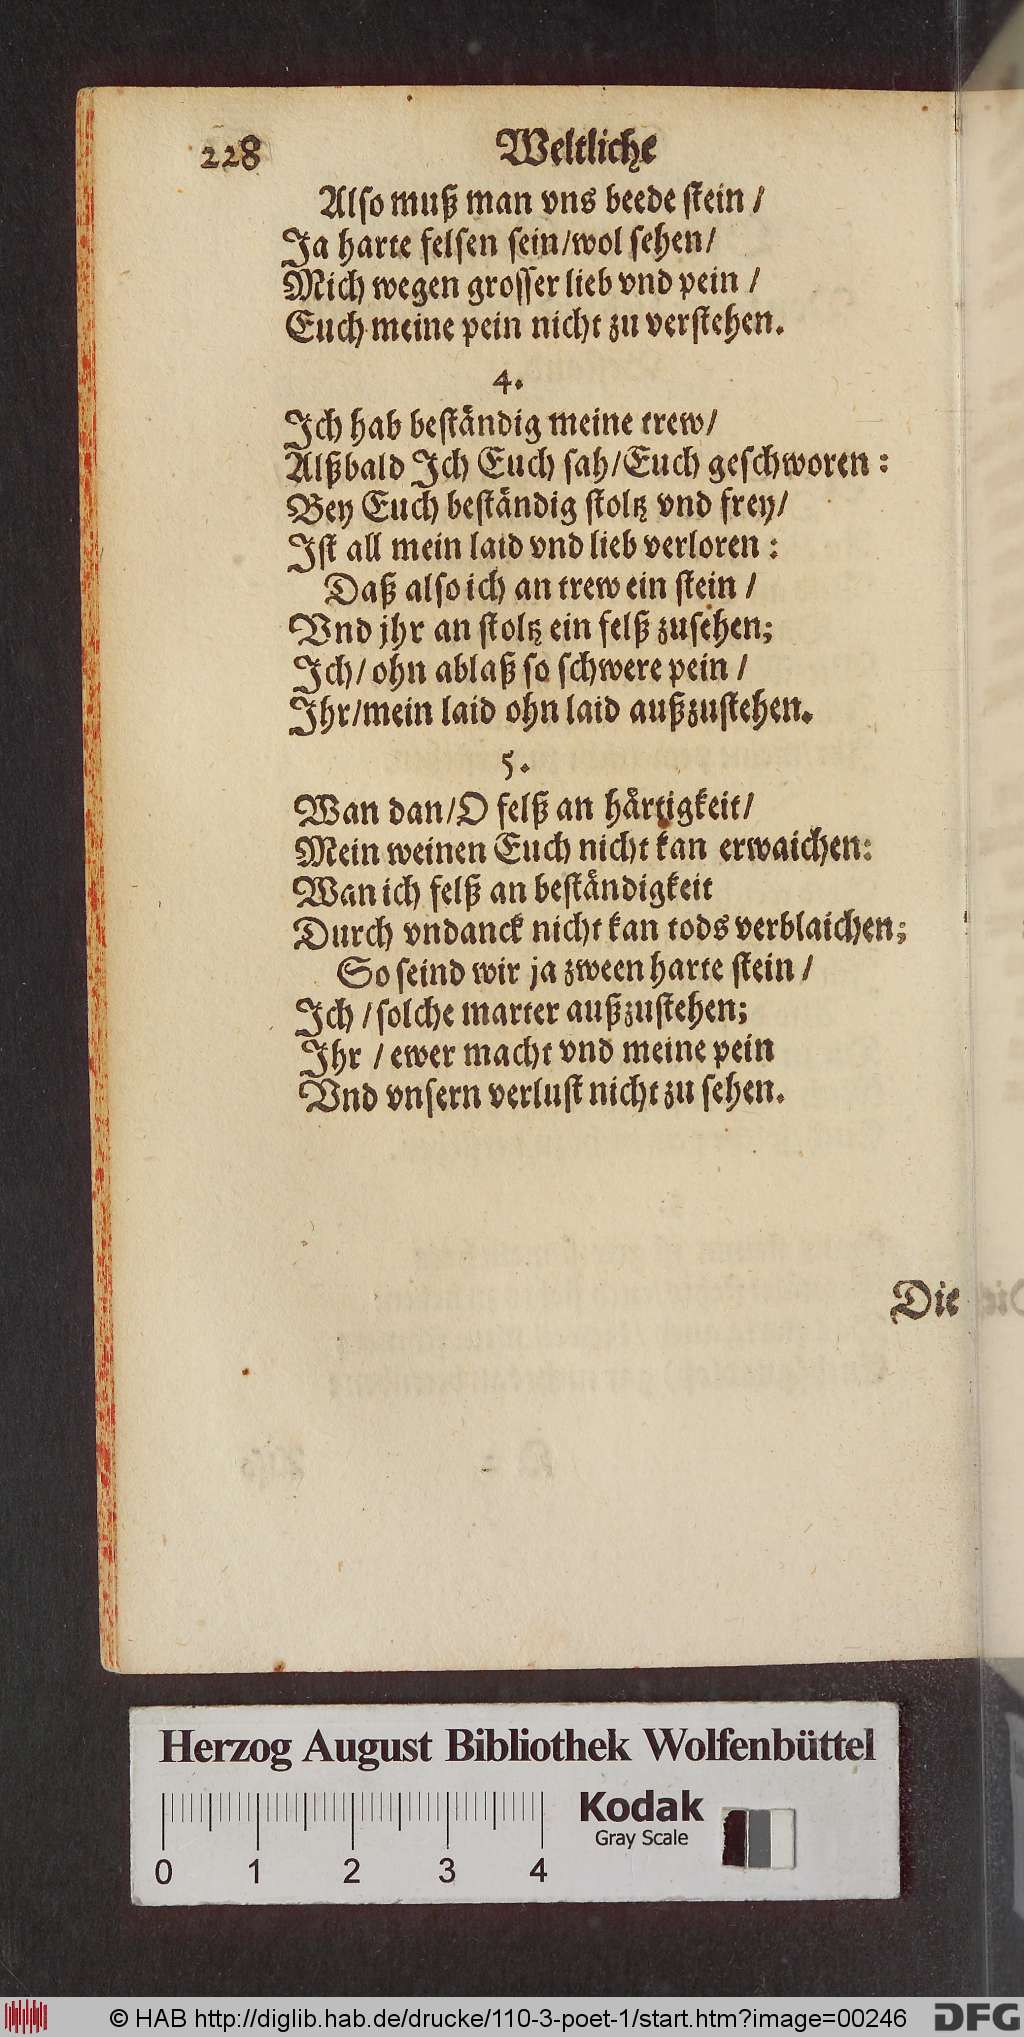 228 Weltliche
Also muß man vns beede stein /
Ja harte felsen sein/wol sehen/
Mich wegen grosser lieb vnd pein /
Euch meine pein nicht zu verstehen.
4.
Ich hab beständig meine trew/
Alßbald Ich Euch sah/Euch geschworen :
Bey Euch beständig stoltz vnd frey/
Ist all mein laid vnd lieb verloren :
Daß also ich an trew ein stein /
Vnd jhr an stoltz ein felß zusehen;
Ich/ ohn ablaß so schwere pein /
Ihr/mein laid ohn laid außzustehen.
5.
Wan dan/O felß an härtigkeit/
Mein weinen Euch nicht kan erwaichen:
Wan ich felß an beständigkeit
Durch vndanck nicht kan tods verblaichen;
So seind wir ja zween harte stein /
Ich /solche marter außzustehen;
Ihr / ewer macht vnd meine pein
Vnd vnsern verlust nicht zu sehen.
Die
Herzog August Bibliothek Wolfenbüttel
Kodak
Gray Scale
0 1 2 3 4
© HAB http://diglib.hab.de/drucke/110-3-poet-1/start.htm?image=00246
DFG